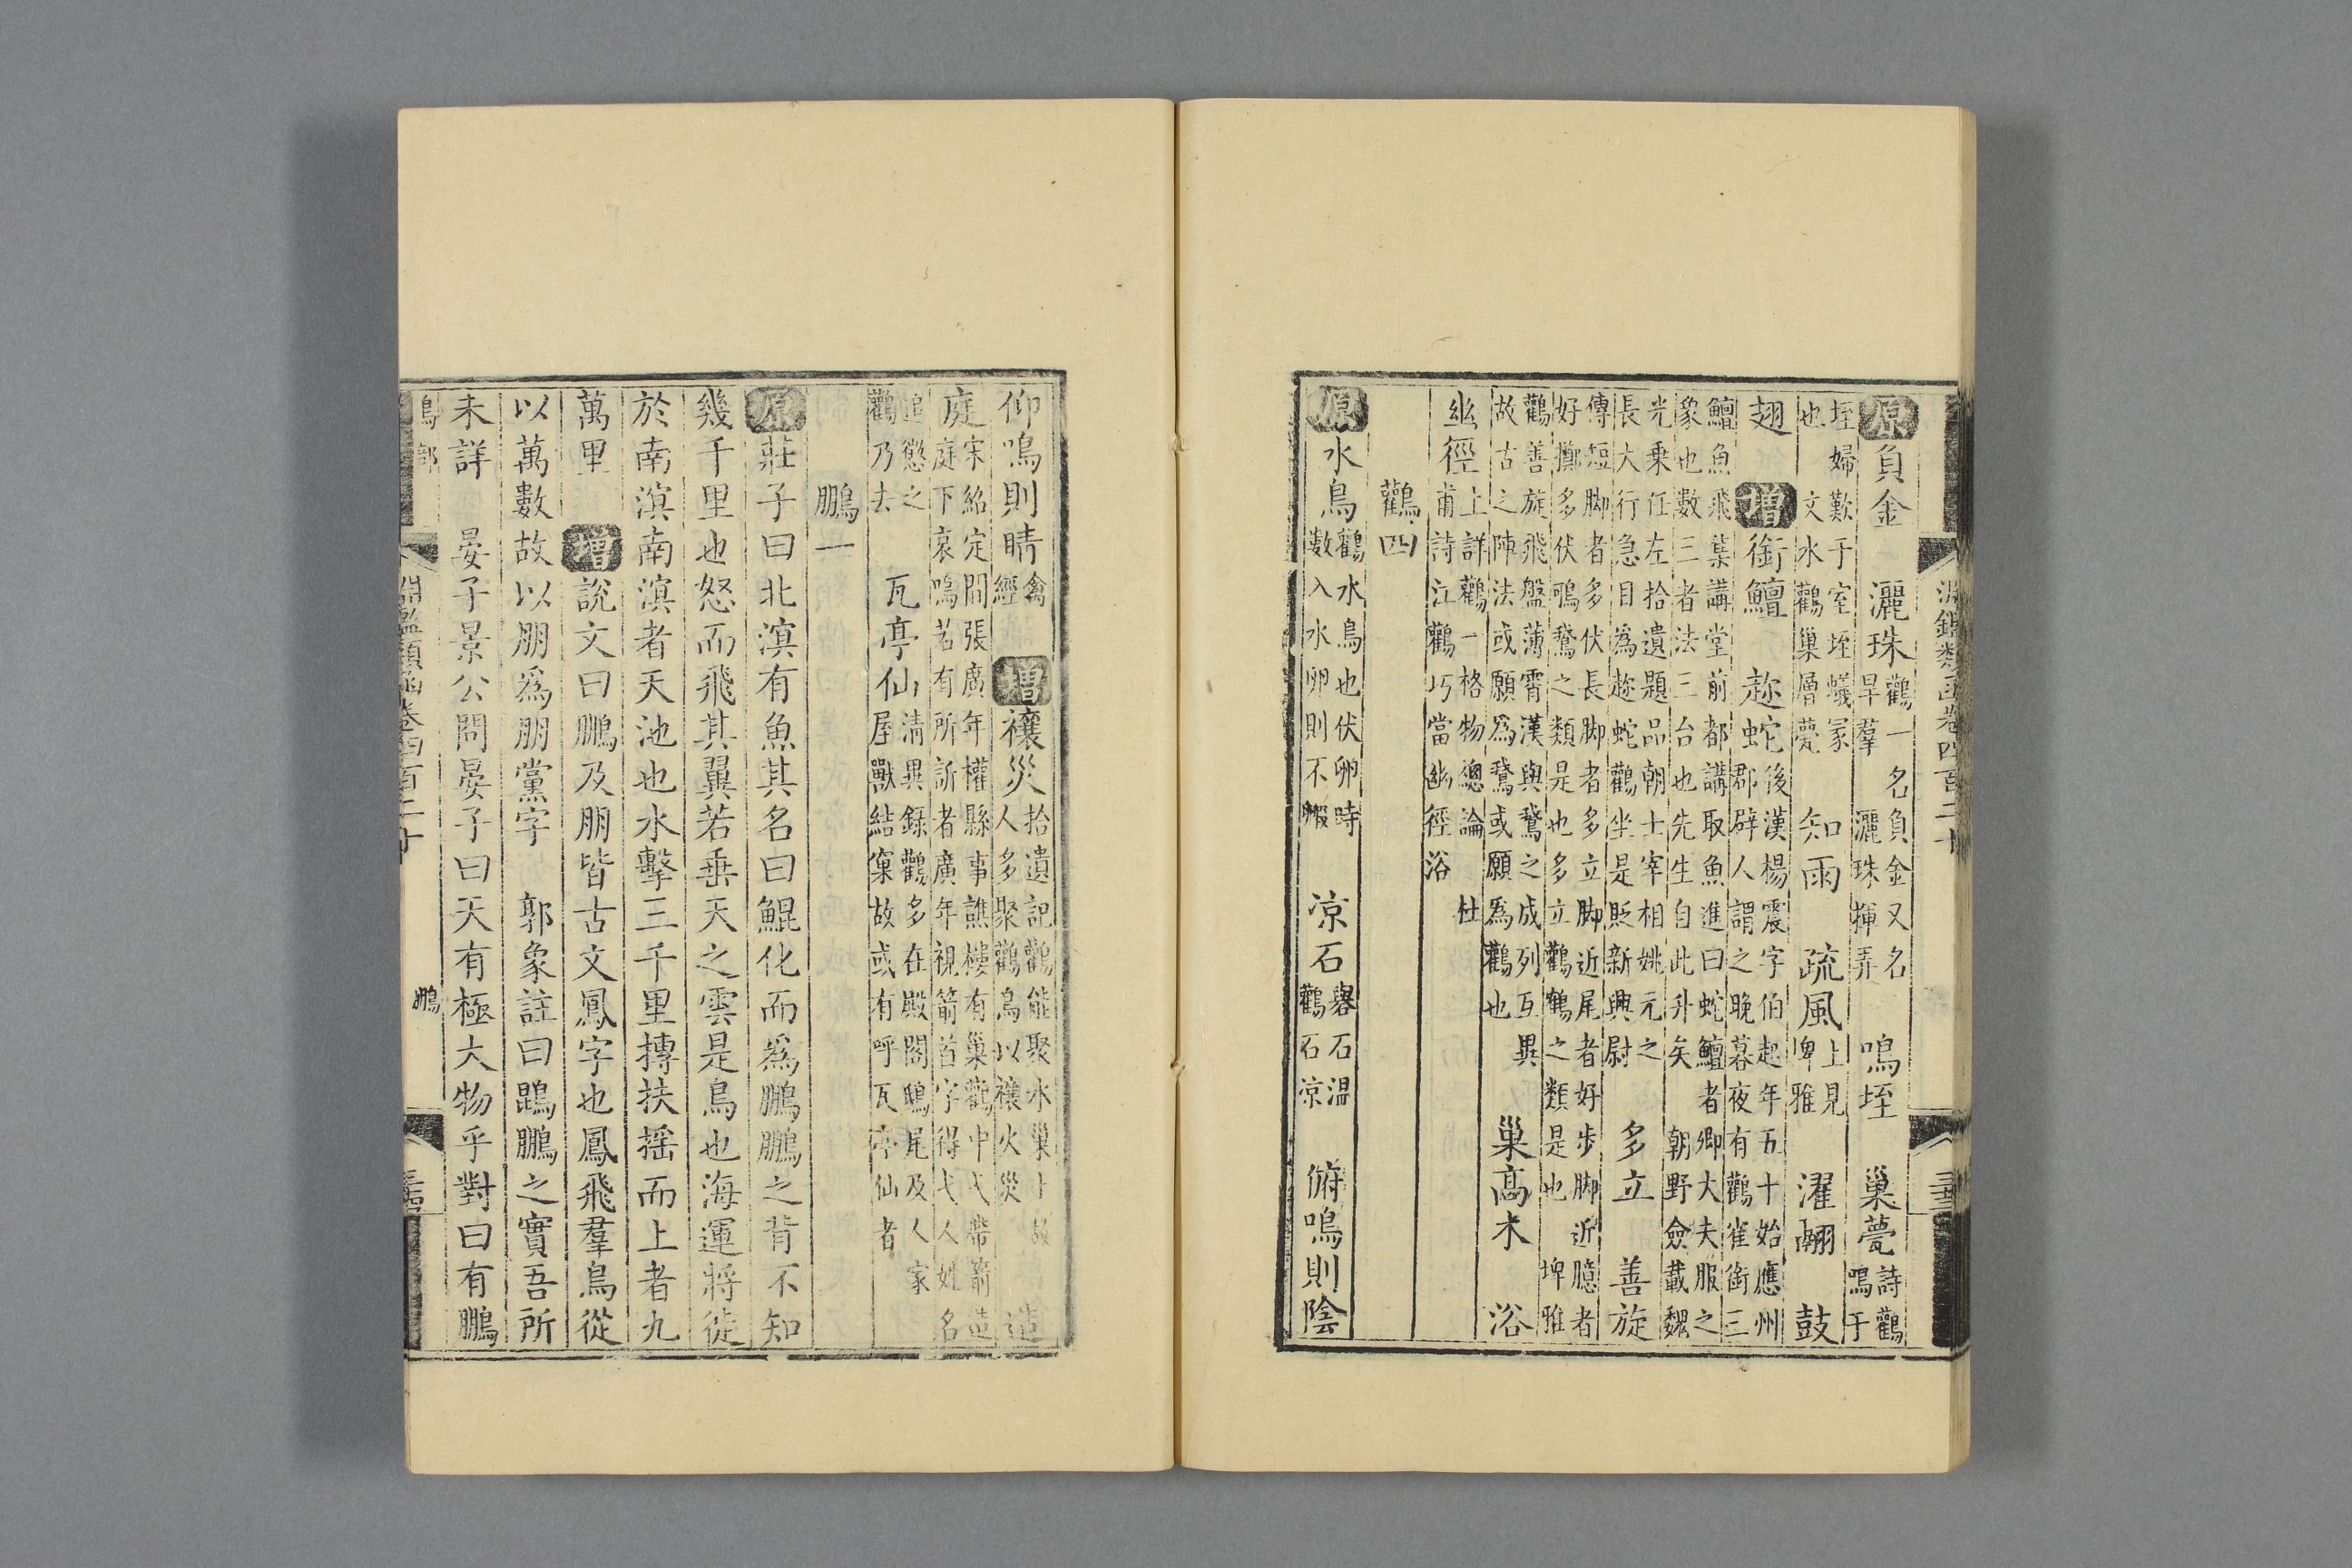 淵鑑類函卷四百二十
原負金 灑珠 鸛一名負金又名
旱羣 灑珠揮弄
鳴垤 巢甍 詩鸛
鳴于
垤婦歎于室垤蟻冢
也 文水鸛巢層甍
知雨 疏風 上見
埤雅
濯翮 鼓
翅 增銜鱣 趂蛇 後漢楊震字伯起年五十始應州
郡辟人謂之晚暮夜有鸛雀銜三
鱣魚飛集講堂前都講取魚進曰蛇鱣者卿大夫服之
象也數三者法三台也先生自此升矣 朝野僉載魏
光乗任左拾遺題品朝士宰相姚元之
長大行急目爲趂蛇鸛坐是貶新興尉
多立 善旋
傳短脚者多伏長脚者多立脚近尾者好步脚近臆者
好擲多伏鳬鵞之類是也多立鸛鶴之類是也 埤雅
鸛善旋飛盤薄霄漢與鵞之成列互異
故古之陣法或願爲鵞或願爲鸛也
巢高木 浴
幽徑 上詳鸛一格物總論 杜
甫詩江鸛巧當幽徑浴
鸛四
原水鳥 鸛水鳥也伏卵時
數入水卵則不毈
凉石 礜石温
鸛石凉
俯鳴則陰
仰鳴則晴 禽
經
增禳災 拾遺記鸛能聚水巢上故
人多聚鸛鳥以禳火災
造
庭 宋紹定間張廣年權縣事譙樓有巢鸛中弋帶箭造
庭下哀鳴若有所訴者廣年視箭首字得弋人姓名
追懲之
鸛乃去
瓦亭仙 清異録鸛多在殿閣鴟尾及人家
屋獸結窠故或有呼瓦亭仙者
鵬一
原莊子曰北溟有魚其名曰鯤化而爲鵬鵬之背不知
幾千里也怒而飛其翼若垂天之雲是鳥也海運將徙
於南溟南溟者天池也水擊三千里摶扶揺而上者九
萬里 增說文曰鵬及朋皆古文鳳字也鳳飛羣鳥從
以萬數故以朋爲朋黨字 郭象註曰鵾鵬之實吾所
未詳 晏子景公問晏子曰天有極大物乎對曰有鵬
鳥部 淵鑑類函卷四百二十 鵬